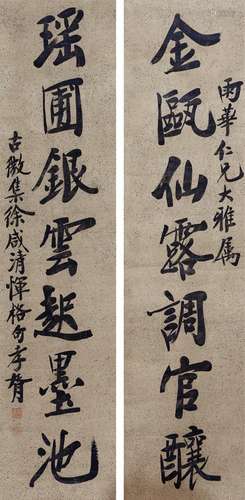 雨華仁兄大雅属
金甌仙露調官釀
瑶圃銀雲起墨池
古微集徐咸清惲格句李育